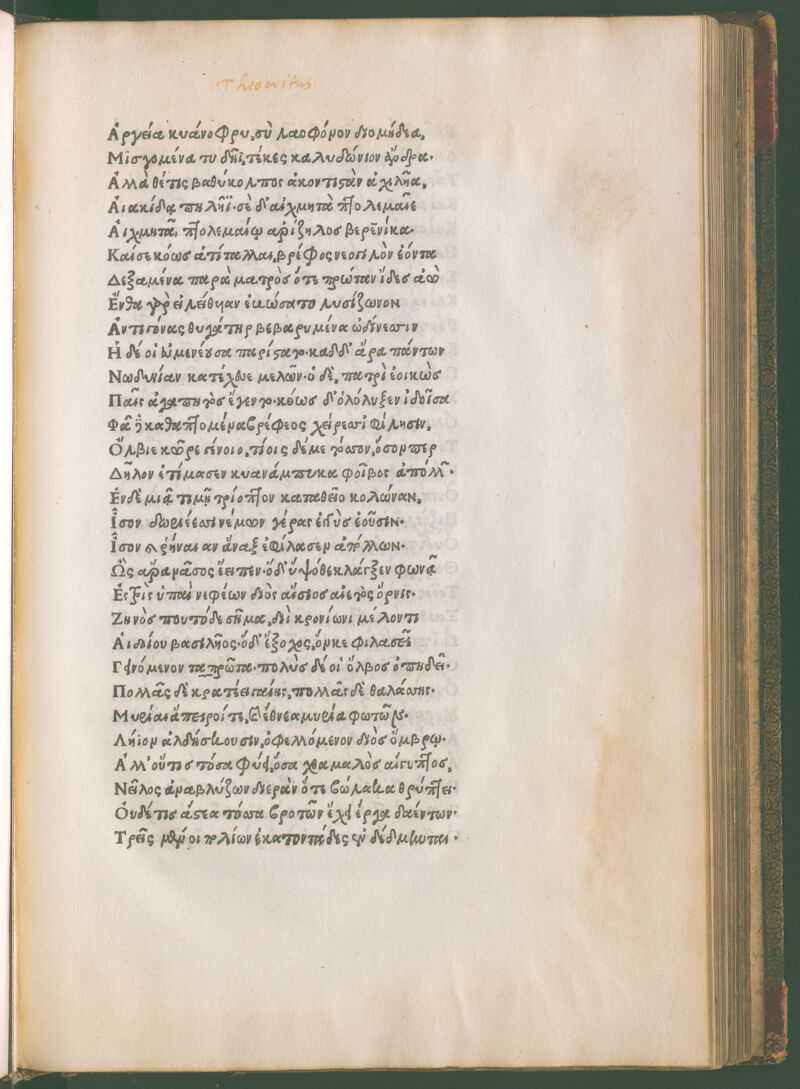 Theocritus.
Ἀργεία κυάνοφρυ, σὺ λαοφόνον διομήδεα,
Μισγομένα τυδῆϊ, τέκες καλυδώνιον ἄνδρα.
Ἀλλὰ θέτις βαθύκολπος ἀκοντιστὰν ἀχιλῆα,
Αἰακίδᾳ πηλῆϊ. σὲ δ' αἰχμητὰ πτολεμαῖε
Αἰχμητᾷ πτολεμαίῳ ἀρίζηλος βερενίκα.
Καί σε κόως ἀτίταλλε, βρέφος νεογιλὸν ἐόντα
Δεξαμένα παρὰ ματρὸς ὅτε πρώταν ἴδες ἀῶ
Ἔνθα γὰρ εἰλείθυιαν ἐβώσατο λυσίζωνον
Ἀντιγόνας θυγάτηρ βεβαρυμένα ὠδίνεσσιν
Ἡ δέ οἱ εὐμενέουσα παρίστατο. καδδ' ἄρα πάντων
Νωδυνίαν κατέχευε μελῶν. ὁ δὲ, πατρὶ ἐοικὼς
Παῖς ἀγαπητὸς ἔγεντο. κόως δ' ὀλόλυξεν ἰδοῖσα
Φᾶ δὲ καθαπτομένα βρέφεος χείρεσσι φίλησιν,
Ὄλβιε κῶρε γένοιο, τίοις δέ με τόσσον, ὅσον περ
Δῆλον ἐτίμασεν κυανάμπυκα φοῖβος ἀπόλλων.
Ἐν δὲ μιᾷ τιμῇ τρίοπτον καταθεῖο κολώναν,
Ἶσον δωριέεσσι νέμων γέρας ἐγγὺς ἐοῦσιν.
Ἶσον ῥήναιαν ἄναξ ἐφίλασεν ἀπόλλων.
Ὣς ἄρα νᾶσος ἔειπεν. ὁ δ' ὑψόθε κλάγξεν φωνᾷ
Ἐς τρὶς ὑπαὶ νεφέων διὸς αἴσιος αἰετὸς ὄρνις.
Ζηνός που τόδε σῆμα, διῒ κρονίωνι μέλοντι
Αἰδοίου βασιλῆος. ὁ δ' ἔξοχος, ὅν κε φιλασεῖ
Γεινόμενον ταπρῶτα. πολὺς δέ οἱ ὄλβος ὀπηδεῖ.
Πολλᾶς δὲ κρατέει γαίης, πολλᾶς δὲ θαλάσσης.
Μυρίαι ἄπειροί τε, καὶ ἔθνεα μυρία φωτῶν.
Λήϊον ἀλδήσκουσιν, ὀφελλόμενον διὸς ὄμβρῳ.
Ἀλλ' οὔτις τόσα φύει, ὅσα χθαμαλὸς αἴγυπτος,
Νεῖλος ἀναβλύζων διερὰν ὅτε βώλακα θρύπτει.
Οὐδέ τις ἄστεα τόσσα βροτῶν ἔχει ἔργα δαέντων.
Τρεῖς μέν οἱ πολίων ἑκατοντάδες ἐνδέδμηνται.